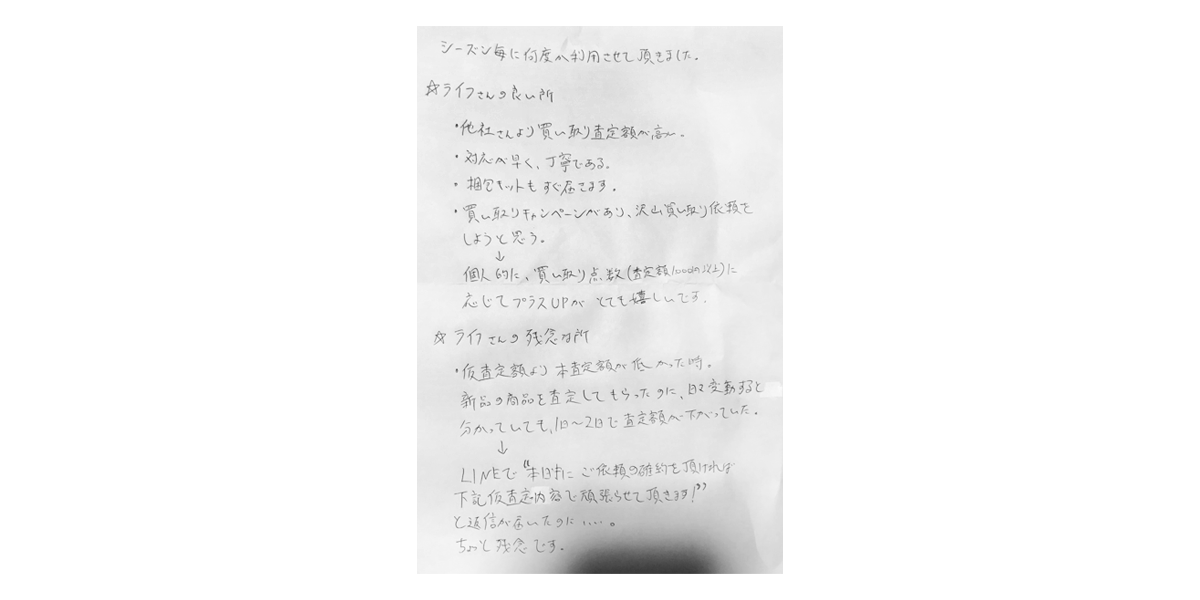 シーズン毎に何度か利用させて頂きました。
☆ライフさんの良い所
・他社さんより買い取り査定額が高い。
・対応が早く、丁寧である。
・梱包キットもすぐ届きます。
・買い取りキャンペーンがあり、沢山買い取り依頼を
しようと思う。
↓
個人的に、買い取り点数(査定額1000円以上)に
応じてプラスUPが とても嬉しいです。
☆ライフさんの残念な所
・仮査定額より本査定額が低かった時。
新品の商品を査定してもらったのに、日々変動すると
分かっていても、1日〜2日で査定額が下がっていた。
↓
LINEで“本日中にご依頼の確約を頂ければ
下記仮査定内容で頑張らせて頂きます!”
と返信が届いたのに....。
ちょっと残念です。